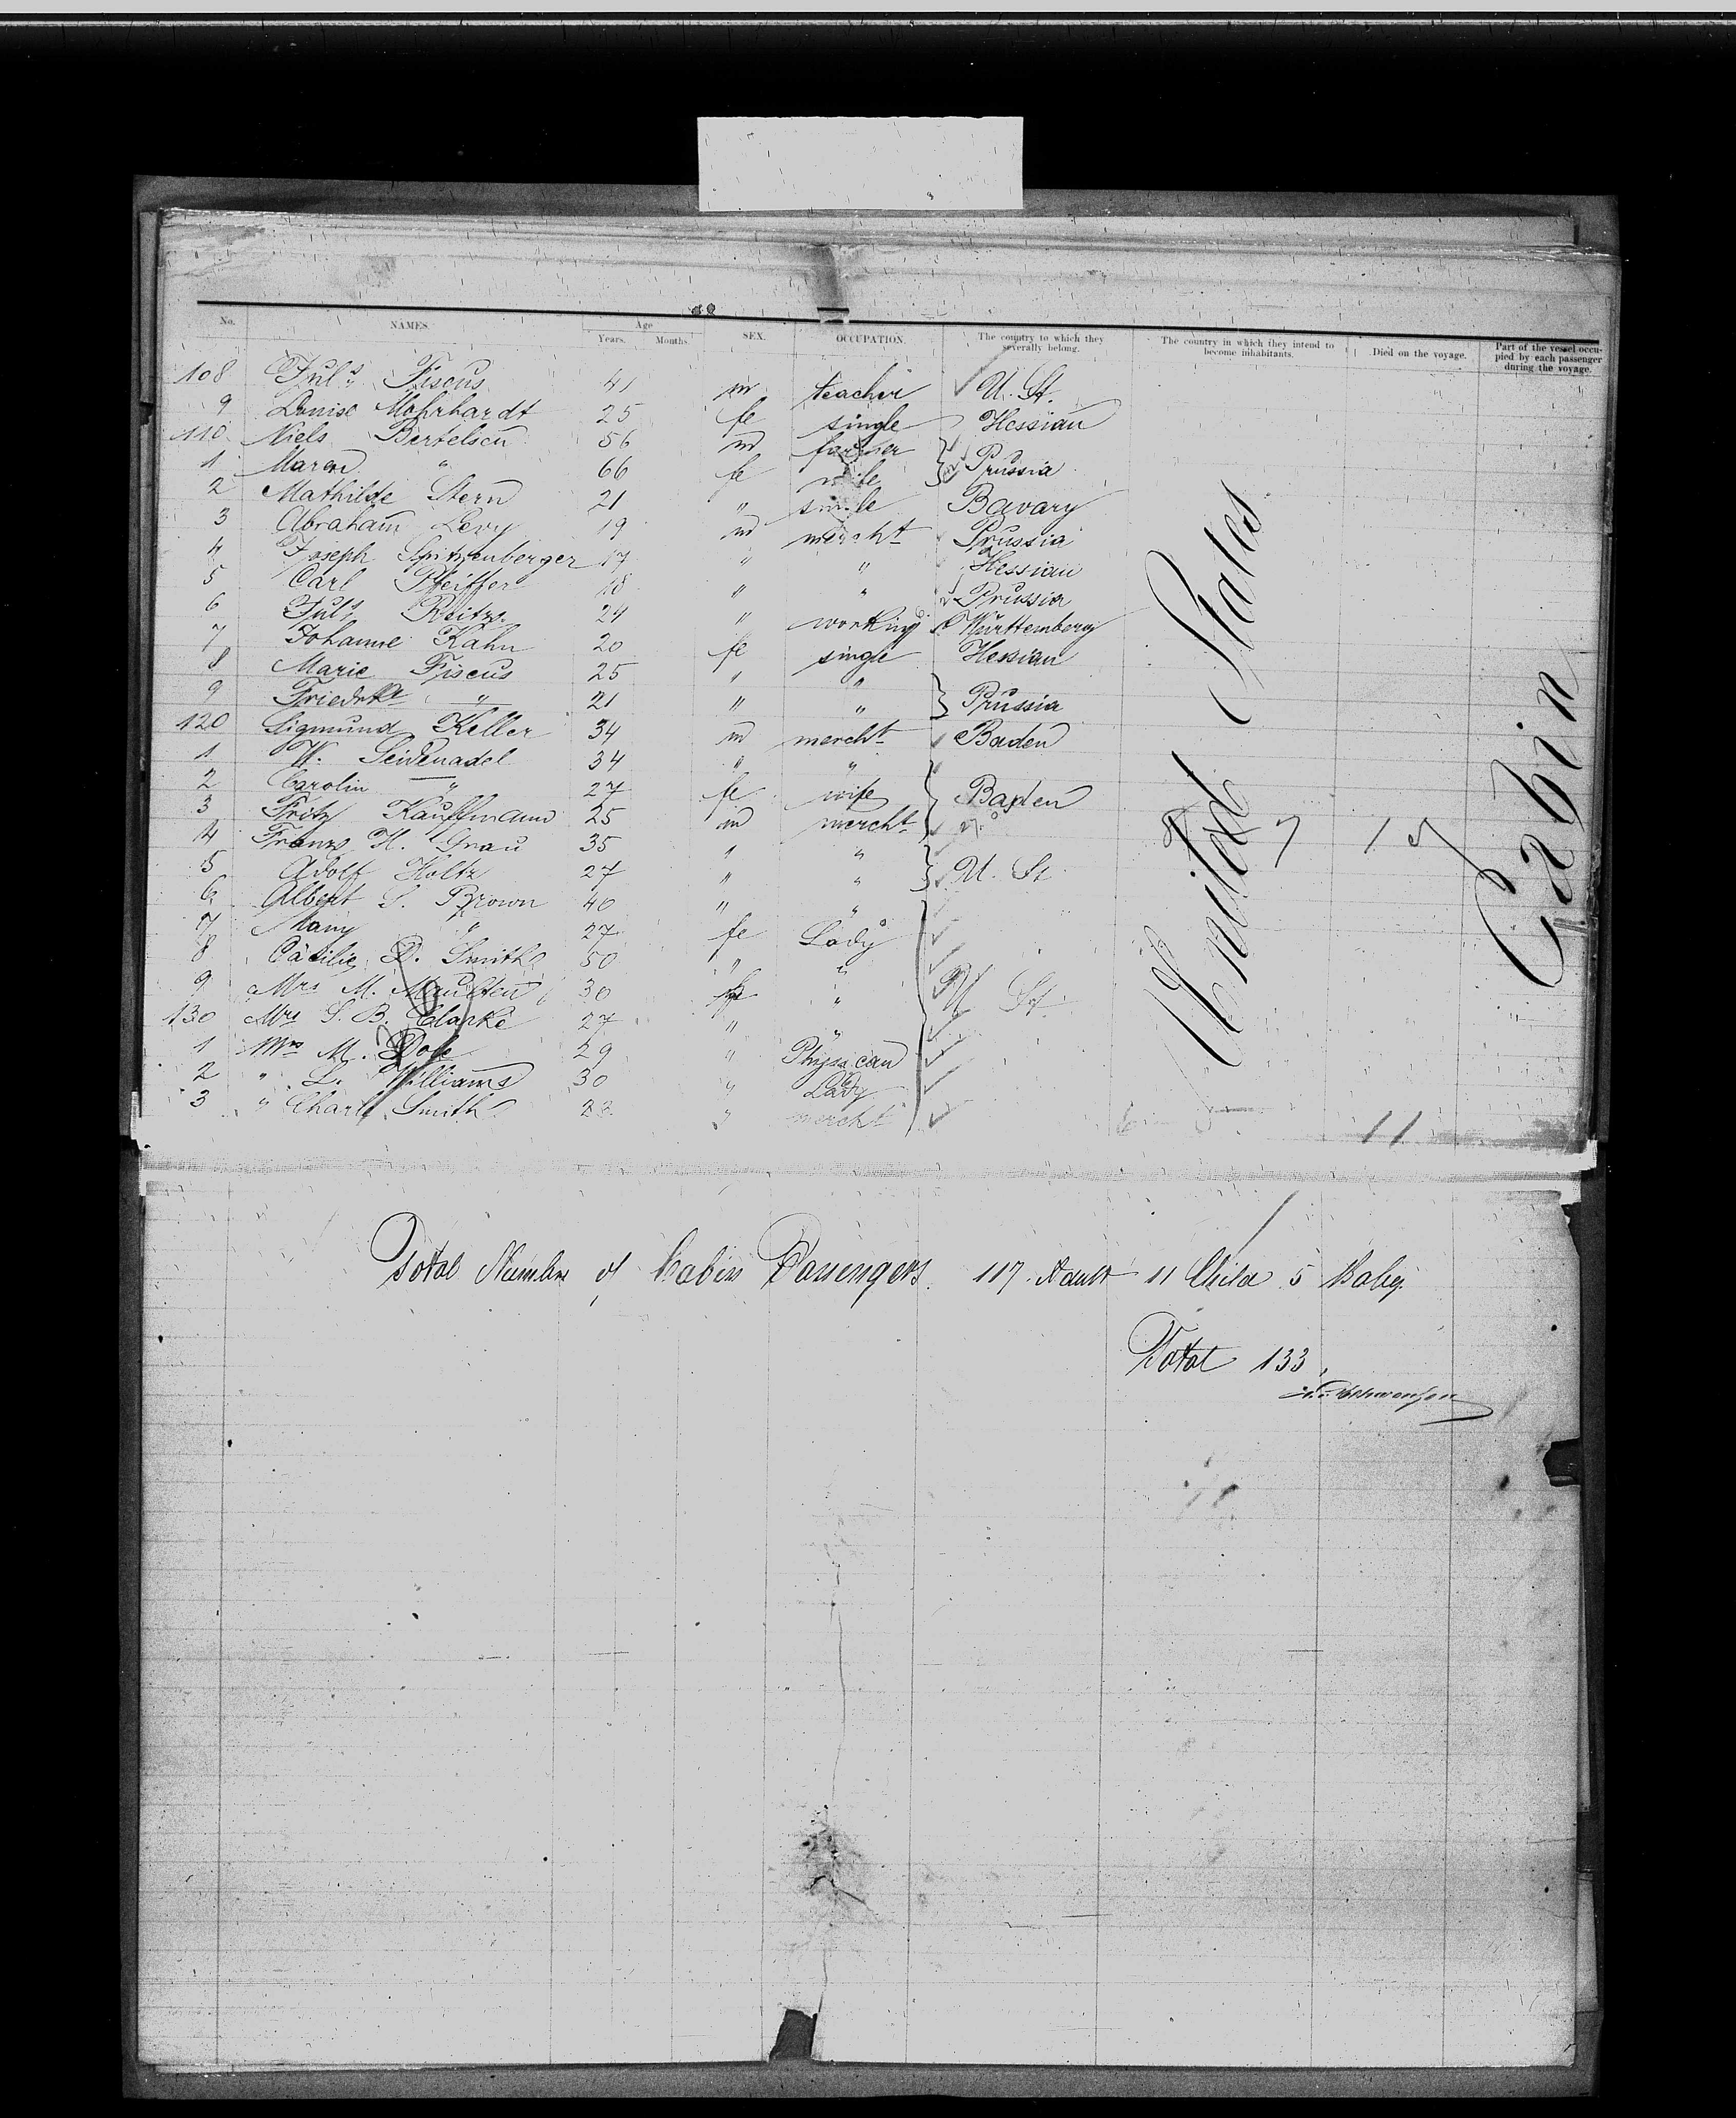 No. NAMES. Age Years. Months. SEX. OCCUPATION. The country to which they severally belong. The country in which they intend to become inhabitants. Died on the voyage. Part of the vessel occupied by each passenger during the voyage.
108 Juls Fiscus 41 m teacher U. St.
9 Louise Mohrhardt 25 fe single Hessian
110 Niels Bertelsen 56 m farmer Prussia
1 Maren " 66 fe wife
2 Mathilde Stern 21 " single Bavary
3 Abraham Levy 19 m mercht Prussia
4 Joseph Spitzenberger 17 " " Hessian
5 Carl Pfeiffer 18 " " Prussia
6 Juls Reitzs 24 " working Württemberg
7 Johanne Kahn 20 fe single Hessian
8 Marie Fiscus 25 " "
9 Friedrke " 21 " " Prussia
120 Sigmund Keller 34 m mercht Baden
1 W. Seidenadel 34 " "
2 Carolin " 27 fe wife Baden
3 Fritz Kauffmann 25 m mercht
4 Franz H. Grau 35 " "
5 Adolf Holtz 27 " " U. St.
6 Albert S. Brown 40 " "
7 Mary " 27 fe Lady
8 Cäcilie D. Smith 50 " "
9 Mrs M. 30 fe " U St.
130 Mrs S. B. Clarke 27 " "
1 Mrs M. Dole 29 " Physican
2 " L. Williams 30 " Lady
3 " Charl. Smith " mercht
United States
Cabin
11
Total Number of Cabin Passengers. 117 Adult 11 Child 5 Baby.
Total 133.